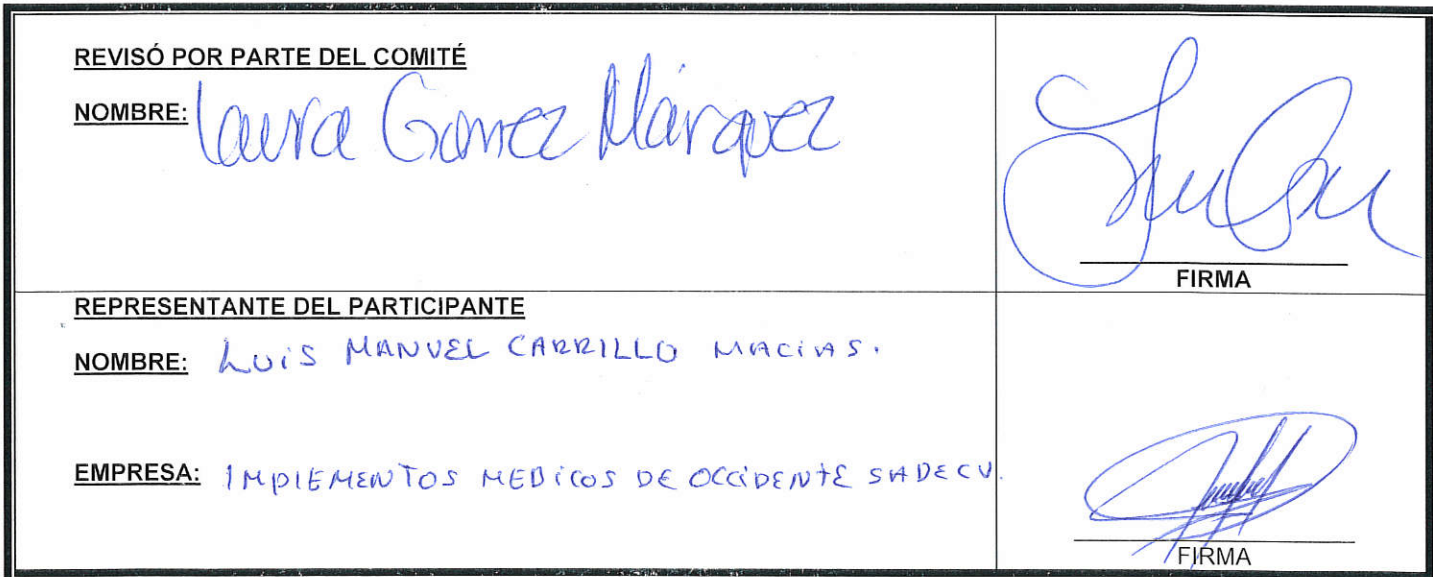 REVISÓ POR PARTE DEL COMITÉ
NOMBRE: Laura Gomez Márquez
FIRMA
REPRESENTANTE DEL PARTICIPANTE
NOMBRE: LUIS MANUEL CARRILLO MACIAS.
EMPRESA: IMPLEMENTOS MEDICOS DE OCCIDENTE SA DE CV.
FIRMA